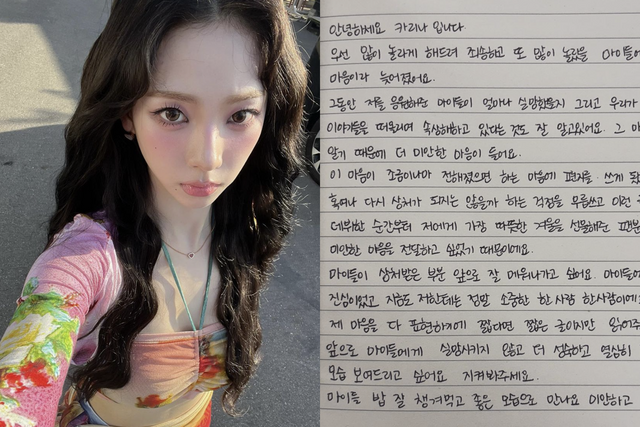 안녕하세요 카리나 입니다
우선 많이 놀라게 해드려 죄송하고 또 많이 놀랐을 마이들에
마음이라 늦어졌어요.
그동안 저를 응원해준 마이들이 얼마나 실망했을지 그리고 우리가
이야기들을 떠올리며 속상해하고 있다는 것도 잘 알고있어요. 그 마
알기 때문에 더 미안한 마음이 들어요.
이 마음이 조금이나마 전해졌으면 하는 마음에 편지를 쓰게
혹여나 다시 상처가 되지는 않을까 하는 걱정을 무릅쓰고 이런
데뷔한 순간부터 저에게 가장 따뜻한 겨울을 선물해준 팬분
미안한 마음을 전달하고 싶었기 때문이에요.
마이들이 상처받은 부분 앞으로 잘 메워나가고 싶어요. 마이들에
진심이었고 지금도 저한테는 정말 소중한 한 사람 한사람이에
제 마음을 다 표현하기에 짧다면 짧은 글이지만 읽어주
앞으로 마이들에게 실망시키지 않고 더 성숙하고 열심히
모습 보여드리고 싶어요 지켜봐주세요.
마이들 밥 잘 챙겨먹고 좋은 모습으로 만나요 미안하고